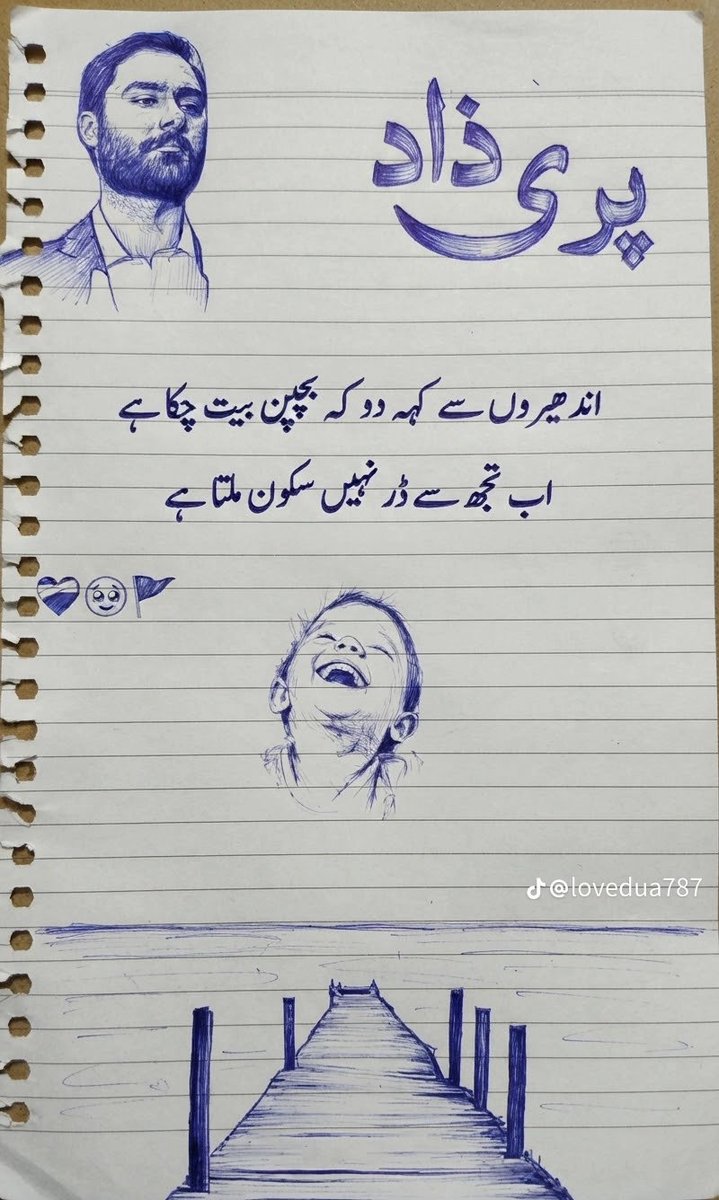 پری ذاد
اندھیروں سے کہہ دو کہ بچپن بیت چکا ہے
اب تجھ سے ڈر نہیں سکون ملتا ہے
@lovedua787